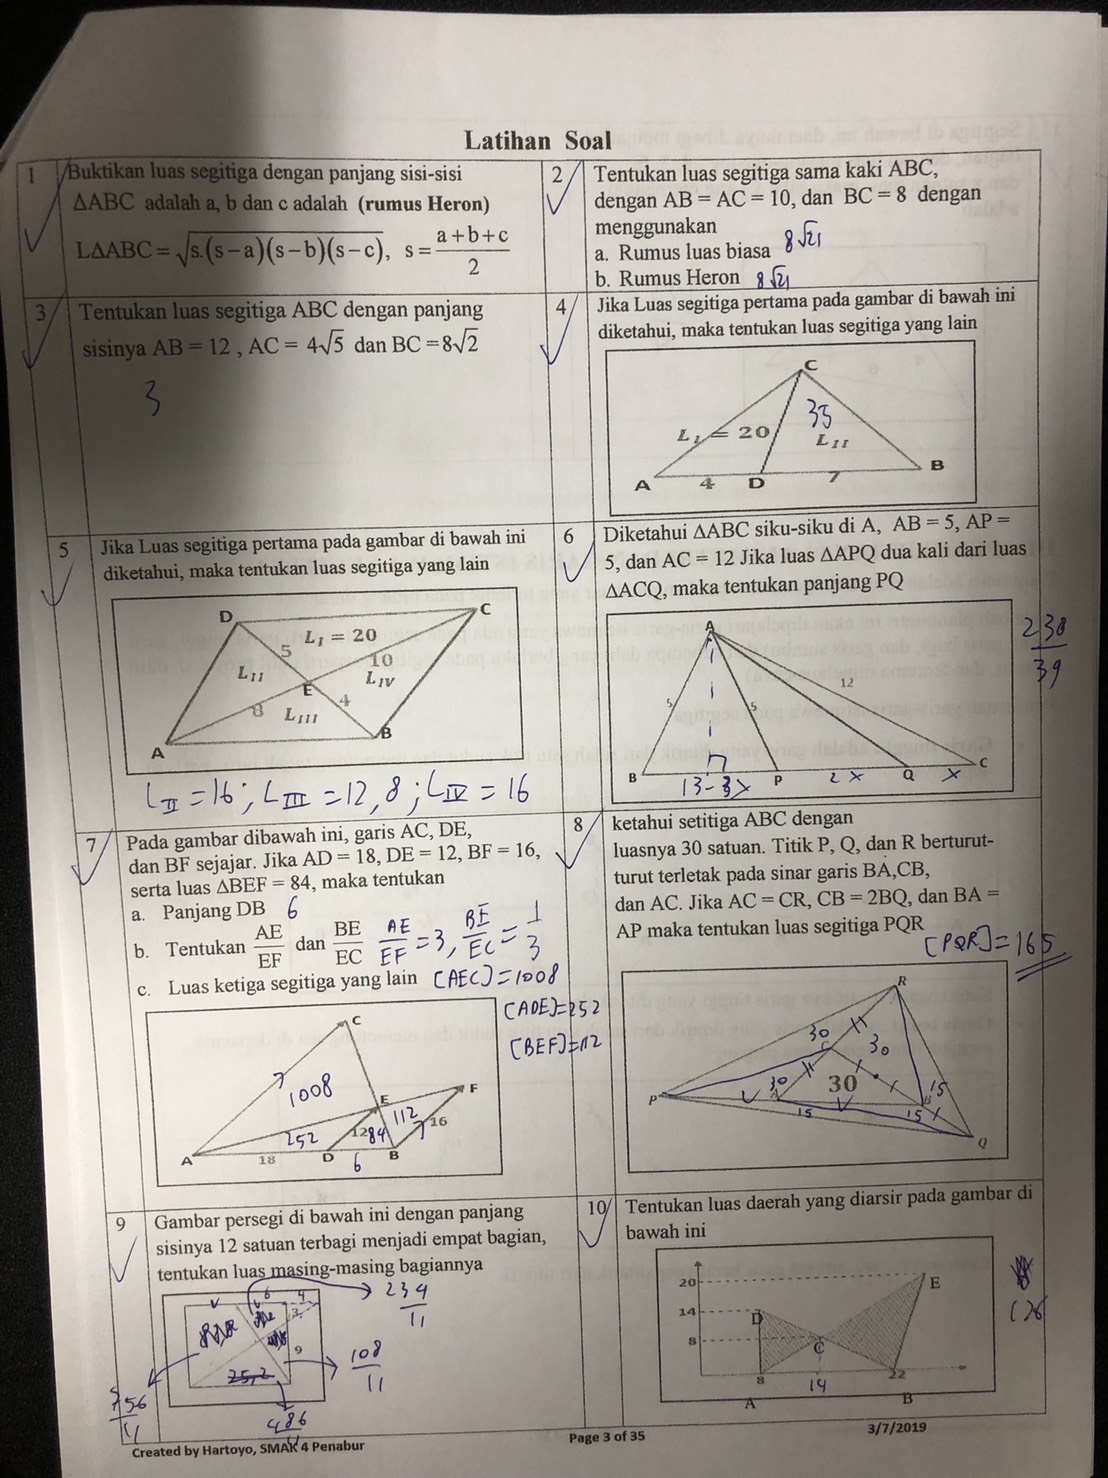 Latihan Soal
1
Buktikan luas segitiga dengan panjang sisi-sisi
ΔABC adalah a, b dan c adalah (rumus Heron)
LΔABC = √s.(s−a)(s−b)(s−c), s = a+b+c / 2
2
Tentukan luas segitiga sama kaki ABC,
dengan AB = AC = 10, dan BC = 8 dengan
menggunakan
a. Rumus luas biasa 8√21
b. Rumus Heron 8√21
3
Tentukan luas segitiga ABC dengan panjang
sisinya AB = 12 , AC = 4√5 dan BC = 8√2
3
4
Jika Luas segitiga pertama pada gambar di bawah ini
diketahui, maka tentukan luas segitiga yang lain
C
35
L_I = 20
L_II
A 4 D 7 B
5
Jika Luas segitiga pertama pada gambar di bawah ini
diketahui, maka tentukan luas segitiga yang lain
D C
L_I = 20
5 10
L_II E L_IV
8 L_III 4
A B
L_II = 16 ; L_III = 12,8 ; L_IV = 16
6
Diketahui ΔABC siku-siku di A, AB = 5, AP =
5, dan AC = 12 Jika luas ΔAPQ dua kali dari luas
ΔACQ, maka tentukan panjang PQ
A
238
39
5 5 12
B P Q C
13-3x 2x x
7
Pada gambar dibawah ini, garis AC, DE,
dan BF sejajar. Jika AD = 18, DE = 12, BF = 16,
serta luas ΔBEF = 84, maka tentukan
a. Panjang DB 6
b. Tentukan AE/EF dan BE/EC AE/EF = 3, BE/EC = 1/3
c. Luas ketiga segitiga yang lain [AEC] = 1008
[ADE] = 252
[BEF] = 112
C
1008
E F
252 12 84 112 16
A 18 D 6 B
8
ketahui setitiga ABC dengan
luasnya 30 satuan. Titik P, Q, dan R berturut-
turut terletak pada sinar garis BA,CB,
dan AC. Jika AC = CR, CB = 2BQ, dan BA =
AP maka tentukan luas segitiga PQR
[PQR] = 165
R
30 C 30
P 30 A 30 B 15
15 15
Q
9
Gambar persegi di bawah ini dengan panjang
sisinya 12 satuan terbagi menjadi empat bagian,
tentukan luas masing-masing bagiannya
6 4
3
9
25,2
234
11
108
11
756
11
486
10
Tentukan luas daerah yang diarsir pada gambar di
bawah ini
20
14
8
D
E
C
8 14 22
A B
126
Created by Hartoyo, SMAK 4 Penabur
Page 3 of 35
3/7/2019